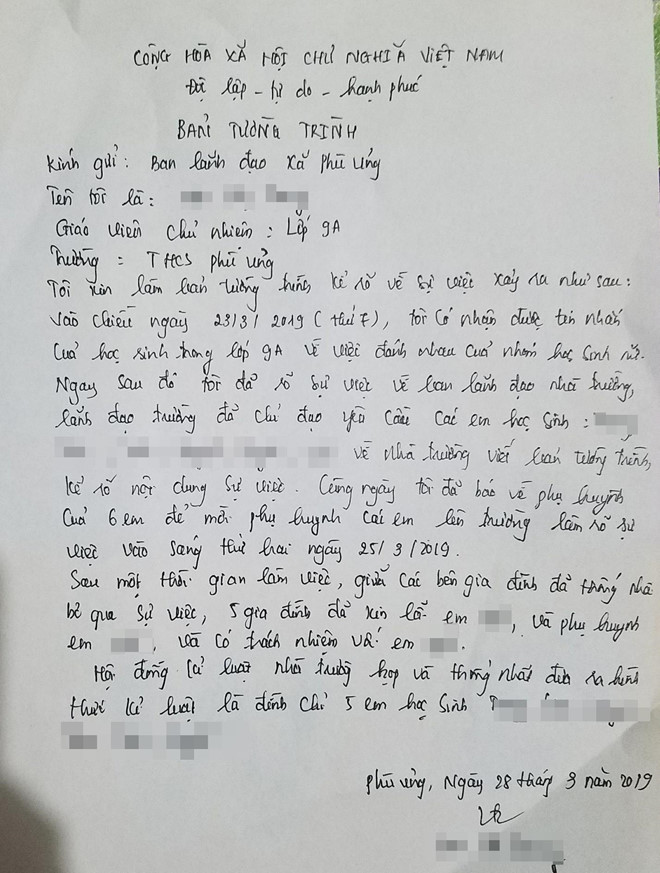 CỘNG HÒA XÃ HỘI CHỦ NGHĨA VIỆT NAM
Độ lập - tự do - hạnh phúc
BẢN TƯỜNG TRÌNH
Kính gửi: Ban lãnh đạo xã phù ủng
Tên tôi là:
Giáo viên chủ nhiệm: Lớp 9A
Trường: THCS phù ủng
Tôi xin làm bản tường trình kể rõ về sự việc xảy ra như sau:
Vào chiều ngày 23/3/2019 (thứ 7), tôi có nhận được tin nhắn
của học sinh trong lớp 9A về việc đánh nhau của nhóm học sinh nữ.
Ngay sau đó tôi đã rõ sự việc về ban lãnh đạo nhà trường,
lãnh đạo trường đã chỉ đạo yêu cầu các em học sinh:
về nhà trường viết bản tường trình,
kể rõ nội dung sự việc. Cùng ngày tôi đã báo về phụ huynh
của 6 em để mời phụ huynh các em lên trường làm rõ sự
việc vào sáng thứ hai ngày 25/3/2019.
Sau một thời gian làm việc, giữa các bên gia đình đã thống nhấ
bỏ qua sự việc, 5 gia đình đã xin lỗi em , và phụ huynh
em , và có trách nhiệm với em .
Hội đồng kỉ luật nhà trường họp và thống nhất đưa ra hình
thức kỉ luật là đình chỉ 5 em học sinh
phù ủng, Ngày 28 tháng 3 năm 2019